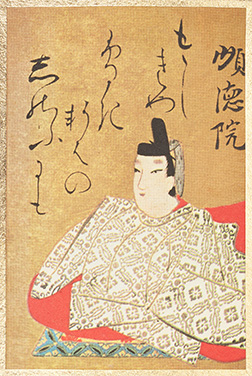 順徳院
もゝし
きや
ふるき
軒はの
志のふにも